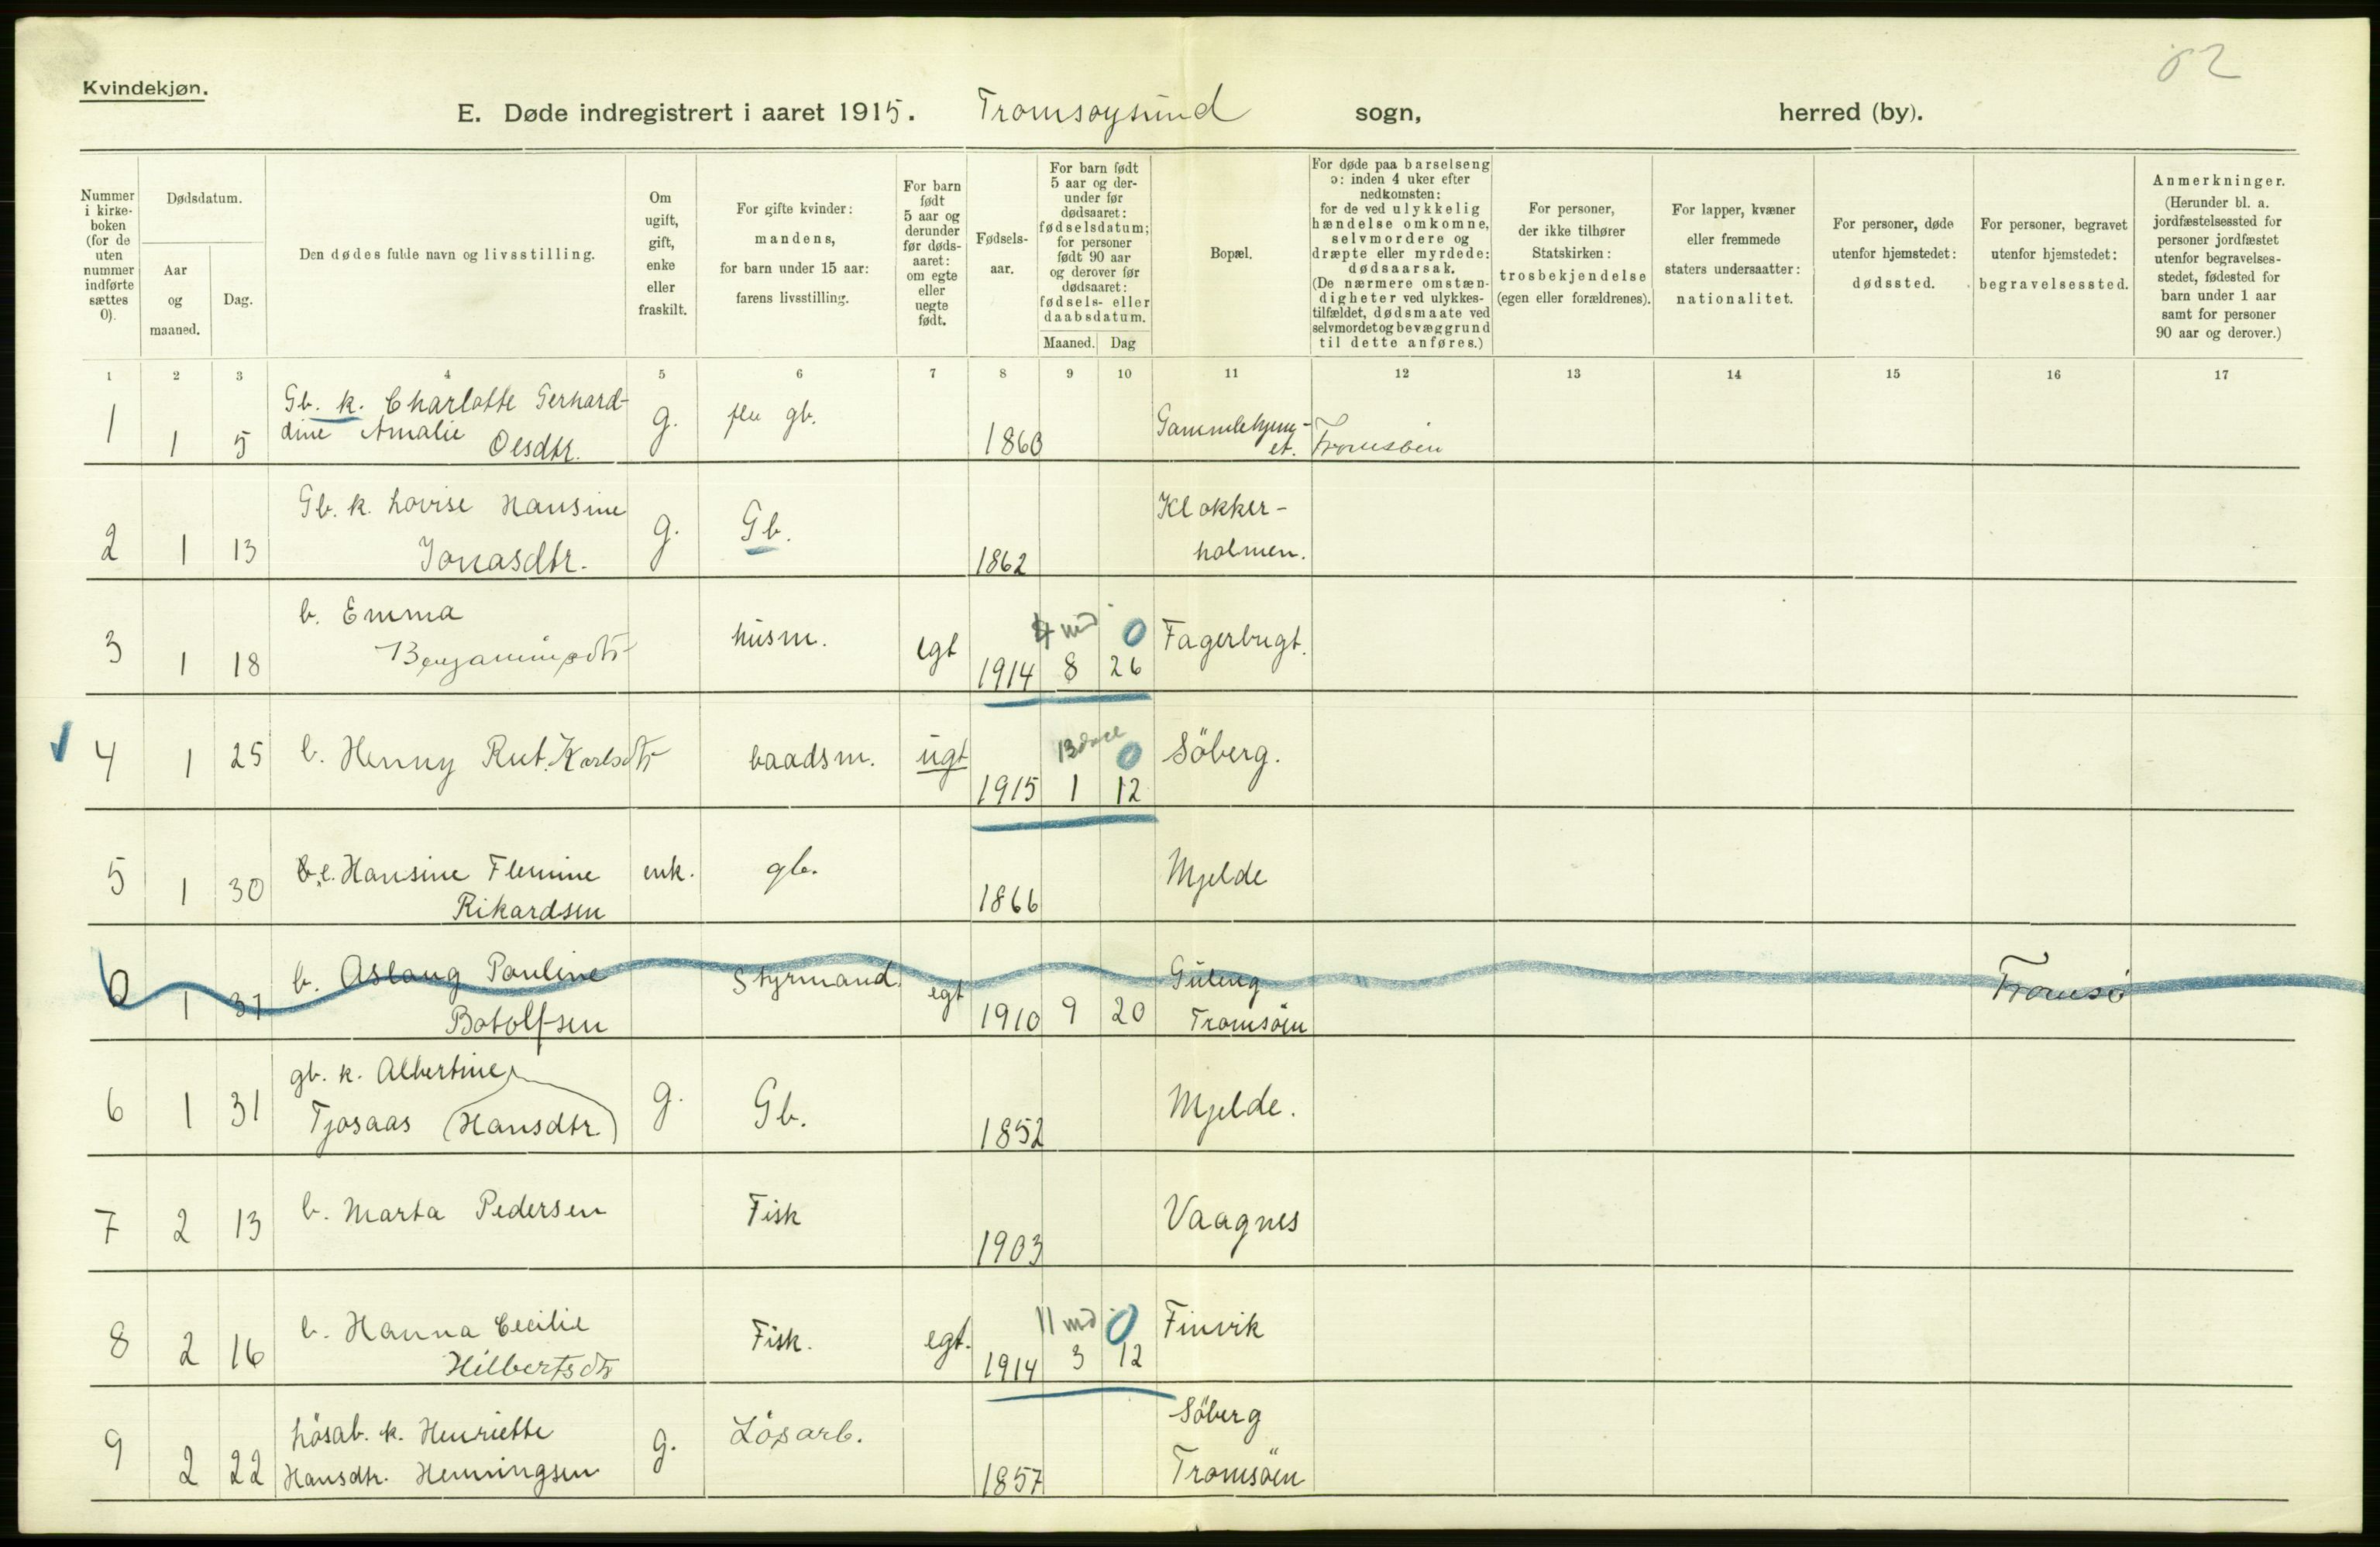 82
Kvindekjøn.
E. Døde indregistrert i aaret 1915. Tromsøysund sogn, herred (by).
Nummer i kirke-boken (for de uten nummer indførte sættes 0).
Dødsdatum.
Aar og maaned.
Dag.
Den dødes fulde navn og livsstilling.
Om ugift, gift, enke eller fraskilt.
For gifte kvinder: mandens, for barn under 15 aar: farens livsstilling.
For barn født 5 aar og derunder før døds-aaret: om egte eller uegte født.
Fødsels-aar.
For barn født 5 aar og der-under før dødsaaret: fødselsdatum; for personer født 90 aar og derover før dødsaaret: fødsels- eller daabsdatum.
Maaned. Dag
Bopæl.
For døde paa barselseng ɔ: inden 4 uker efter nedkomsten: for de ved ulykkelig hændelse omkomne, selvmordere og dræpte eller myrdede: dødsaarsak. (De nærmere omstæn-digheter ved ulykkes-tilfældet, dødsmaate ved selvmordet og bevæggrund til dette anføres.)
For personer, der ikke tilhører Statskirken: trosbekjendelse (egen eller forældrenes).
For lapper, kvæner eller fremmede staters undersaatter: nationalitet.
For personer, døde utenfor hjemstedet: dødssted.
For personer, begravet utenfor hjemstedet: begravelsessted.
Anmerkninger. (Herunder bl. a. jordfæstelsessted for personer jordfæstet utenfor begravelses-stedet, fødested for barn under 1 aar samt for personer 90 aar og derover.)
1 2 3 4 5 6 7 8 9 10 11 12 13 14 15 16 17
1 1 5 Gb. k. Charlotte Gerhard-
dine Amalie Olsdtr. g. gb. 1860 Gammelhjem-
et. Tromsöen
2 1 13 Gb. k. Lovise Hansine
Jonasdtr. g. Gb. 1862 Klokker-
holmen.
3 1 18 b. Emma
Benjaminsdtr husm. egt 4 md 0
1914 8 26 Fagerbugt.
4 1 25 b. Henny Rut. Karlsdtr baadsm. ugt 13 dage 0
1915 1 12 Söberg.
5 1 30 e. Hansine Flemine
Rikardsen enk. gb. 1866 Mjelde
0 1 31 b. Aslaug Pauline
Botolfsen Styrmand. egt 1910 9 20 Guleng
Tromsöen Tromsö
6 1 31 gb. k. Albertine
Tjosaas (Hansdtr.) g. Gb. 1852 Mjelde.
7 2 13 b. Marta Pedersen Fisk 1903 Vaagnes
8 2 16 b. Hanna Cecilie
Hilbertsdtr Fisk. egt. 11 md 0
1914 3 12 Finvik
9 2 22 Lösab. k. Henriette
Hansdtr. Henningsen g. Lösarb. 1857 Söberg
Tromsöen